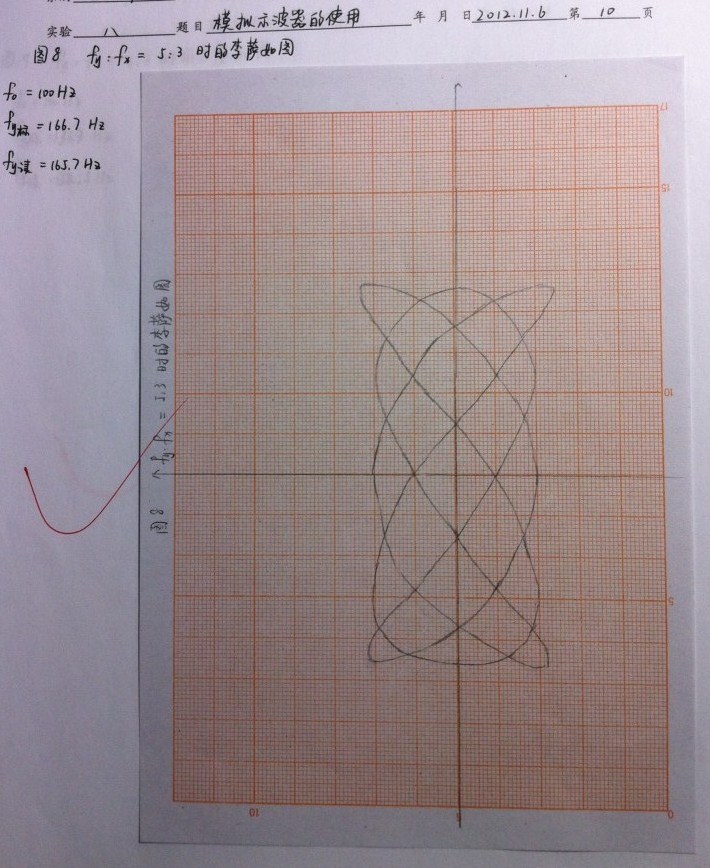 实验 八 题目 模拟示波器的使用 年 月 日 2012.11.6 第 10 页
图8 fy:fx = 5:3 时的李萨如图
f₀ = 100Hz
fy标 = 166.7 Hz
fy读 = 165.7 Hz
图8 fy:fx = 5:3 时的李萨如图
17
15
10
5
0
10